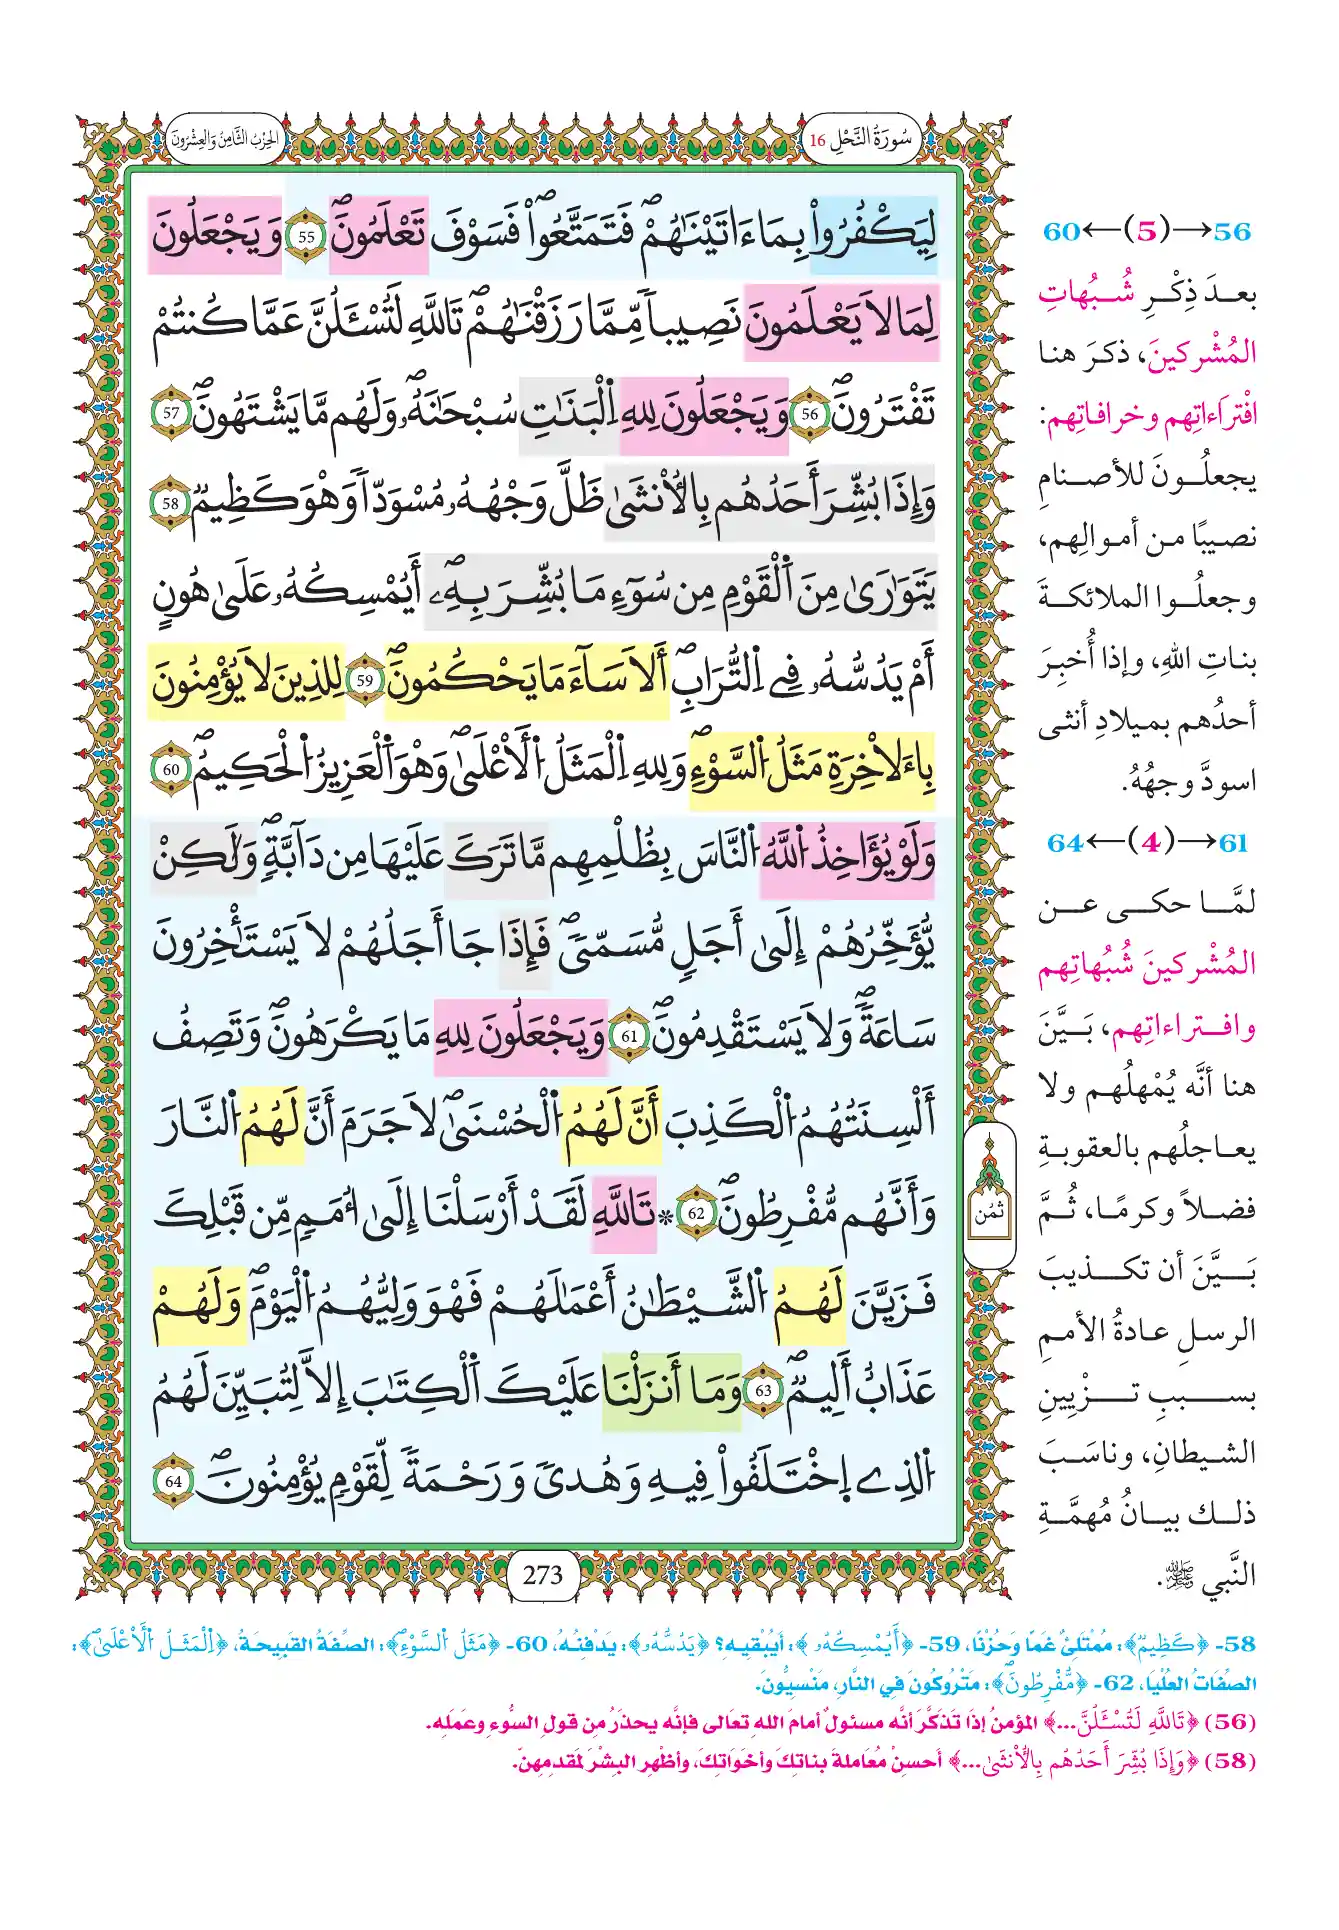 سُورَةُ النَّحْلِ 16
الحِزْبُ الثَّامِنُ وَالعِشْرُونَ
لِيَكْفُرُواْ بِمَا ءَاتَيْنَٰهُمْ فَتَمَتَّعُواْ فَسَوْفَ تَعْلَمُونَ 55 وَيَجْعَلُونَ
لِمَا لَا يَعْلَمُونَ نَصِيباً مِّمَّا رَزَقْنَٰهُمْ تَاللَّهِ لَتُسْـَٔلُنَّ عَمَّا كُنتُمْ
تَفْتَرُونَ 56 وَيَجْعَلُونَ لِلهِ اِلْبَنَٰتِ سُبْحَٰنَهُۥ وَلَهُم مَّا يَشْتَهُونَ 57
وَإِذَا بُشِّرَ أَحَدُهُم بِالْأُنثَىٰ ظَلَّ وَجْهُهُۥ مُسْوَدّاً وَهْوَ كَظِيمٌ 58
يَتَوَٰرَىٰ مِنَ اَلْقَوْمِ مِن سُوٓءِ مَا بُشِّرَ بِهِۦٓ أَيُمْسِكُهُۥ عَلَىٰ هُونٍ
أَمْ يَدُسُّهُۥ فِے اِلتُّرَابِ أَلَا سَآءَ مَا يَحْكُمُونَ 59 لِلذِينَ لَا يُؤْمِنُونَ
بِالَاخِرَةِ مَثَلُ اُلسَّوْءِ وَلِلهِ اِلْمَثَلُ اُلَاعْلَىٰ وَهْوَ اَلْعَزِيزُ اُلْحَكِيمُ 60
وَلَوْ يُؤَاخِذُ اُللَّهُ اُلنَّاسَ بِظُلْمِهِم مَّا تَرَكَ عَلَيْهَا مِن دَآبَّةٍ وَلَٰكِنْ
يُّؤَخِّرُهُمْ إِلَىٰ أَجَلٍ مُّسَمّىً فَإِذَا جَا أَجَلُهُمْ لَا يَسْتَـْٔخِرُونَ
سَاعَةً وَلَا يَسْتَقْدِمُونَ 61 وَيَجْعَلُونَ لِلهِ مَا يَكْرَهُونَ وَتَصِفُ
أَلْسِنَتُهُمُ اُلْكَذِبَ أَنَّ لَهُمُ اُلْحُسْنَىٰ لَا جَرَمَ أَنَّ لَهُمُ اُلنَّارَ
وَأَنَّهُم مُّفْرِطُونَ 62 * تَاللَّهِ لَقَدْ أَرْسَلْنَا إِلَىٰ أُمَمٍ مِّن قَبْلِكَ
فَزَيَّنَ لَهُمُ اُلشَّيْطَٰنُ أَعْمَٰلَهُمْ فَهْوَ وَلِيُّهُمُ اُلْيَوْمَ وَلَهُمْ
عَذَابٌ أَلِيمٌ 63 وَمَا أَنزَلْنَا عَلَيْكَ اَلْكِتَٰبَ إِلَّا لِتُبَيِّنَ لَهُمُ
اُلذِے اِخْتَلَفُواْ فِيهِ وَهُدىً وَرَحْمَةً لِّقَوْمٍ يُؤْمِنُونَ 64
ثمُن
273
56→(5)←60
بعدَ ذِكْرِ شُبُهاتِ
المُشْركينَ، ذكرَ هنا
افْتراءاتِهم وخرافاتِهم:
يجعلُونَ للأصنامِ
نصيبًا من أموالِهم،
وجعلُوا الملائكةَ
بناتِ اللهِ، وإذا أُخبِرَ
أحدُهم بميلادِ أنثى
اسودَّ وجهُهُ.
61→(4)←64
لمَّا حكى عن
المُشْركينَ شُبُهاتِهم
وافتراءاتِهم، بَيَّنَ
هنا أنَّه يُمْهلُهم ولا
يعاجلُهم بالعقوبةِ
فضلاً وكرمًا، ثُمَّ
بَيَّنَ أن تكذيبَ
الرسلِ عادةُ الأممِ
بسببِ تزْيِينِ
الشيطانِ، وناسَبَ
ذلك بيانُ مُهمَّةِ
النَّبي ﷺ.
58- ﴿كَظِيمٌ﴾: مُمْتَلِئٌ غَمًّا وَحُزْنًا، 59- ﴿أَيُمْسِكُهُۥ﴾: أَيُبْقِيهِ؟ ﴿يَدُسُّهُۥ﴾: يَدْفِنُهُ، 60- ﴿مَثَلُ اُلسَّوْءِ﴾: الصِّفَةُ القَبِيحَةُ، ﴿اِلْمَثَلُ اُلَاعْلَىٰ﴾:
الصِّفَاتُ العُلْيَا، 62- ﴿مُّفْرِطُونَ﴾: مَتْرُوكُونَ فِي النَّارِ، مَنْسِيُّونَ.
(56) ﴿تَاللَّهِ لَتُسْـَٔلُنَّ...﴾ المؤمنُ إذَا تَذَكَّرَ أنَّه مسئولٌ أمامَ اللهِ تعَالى فإنَّه يحذَرُ مِن قولِ السُّوءِ وعَمَلِه.
(58) ﴿وَإِذَا بُشِّرَ أَحَدُهُم بِالْأُنثَىٰ...﴾ أحسِنْ مُعَاملةَ بناتِكَ وأخَوَاتِكَ، وأظْهِر البِشْرَ لمَقدمِهِنّ.